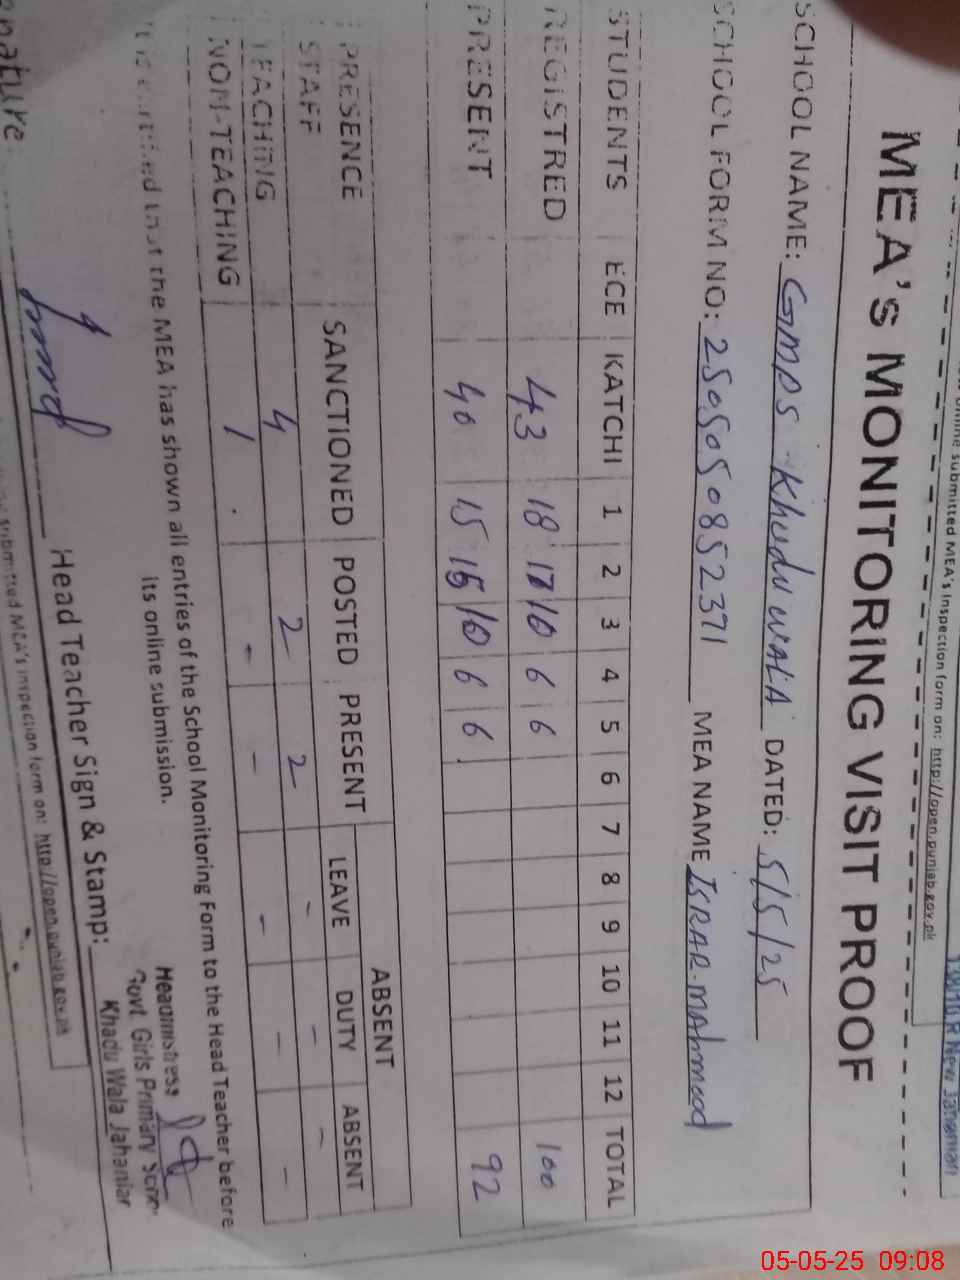 138/10 R New Jahanian
submitted MEA's Inspection form on: http://open.punjab.gov.pk
MEA's MONITORING VISIT PROOF
SCHOOL NAME: GMPS Khudu WALA DATED: 5/5/25
SCHOOL FORM NO: 2505050852371 MEA NAME ISRAR.mahmood
STUDENTS ECE KATCHI 1 2 3 4 5 6 7 8 9 10 11 12 TOTAL
REGISTRED 43 18 17 10 6 6 100
PRESENT 40 15 15 10 6 6 92
PRESENCE SANCTIONED POSTED PRESENT ABSENT
STAFF LEAVE DUTY ABSENT
TEACHING 4 2 2 - - -
NON-TEACHING 1 - - - - -
It is certified that the MEA has shown all entries of the School Monitoring Form to the Head Teacher before
its online submission.
Headmistress
Govt Girls Primary
Khadu Wala Jahanian
Head Teacher Sign & Stamp:
Submitted MEA's inspection form on: http://open.punjab.gov.pk
05-05-25 09:08